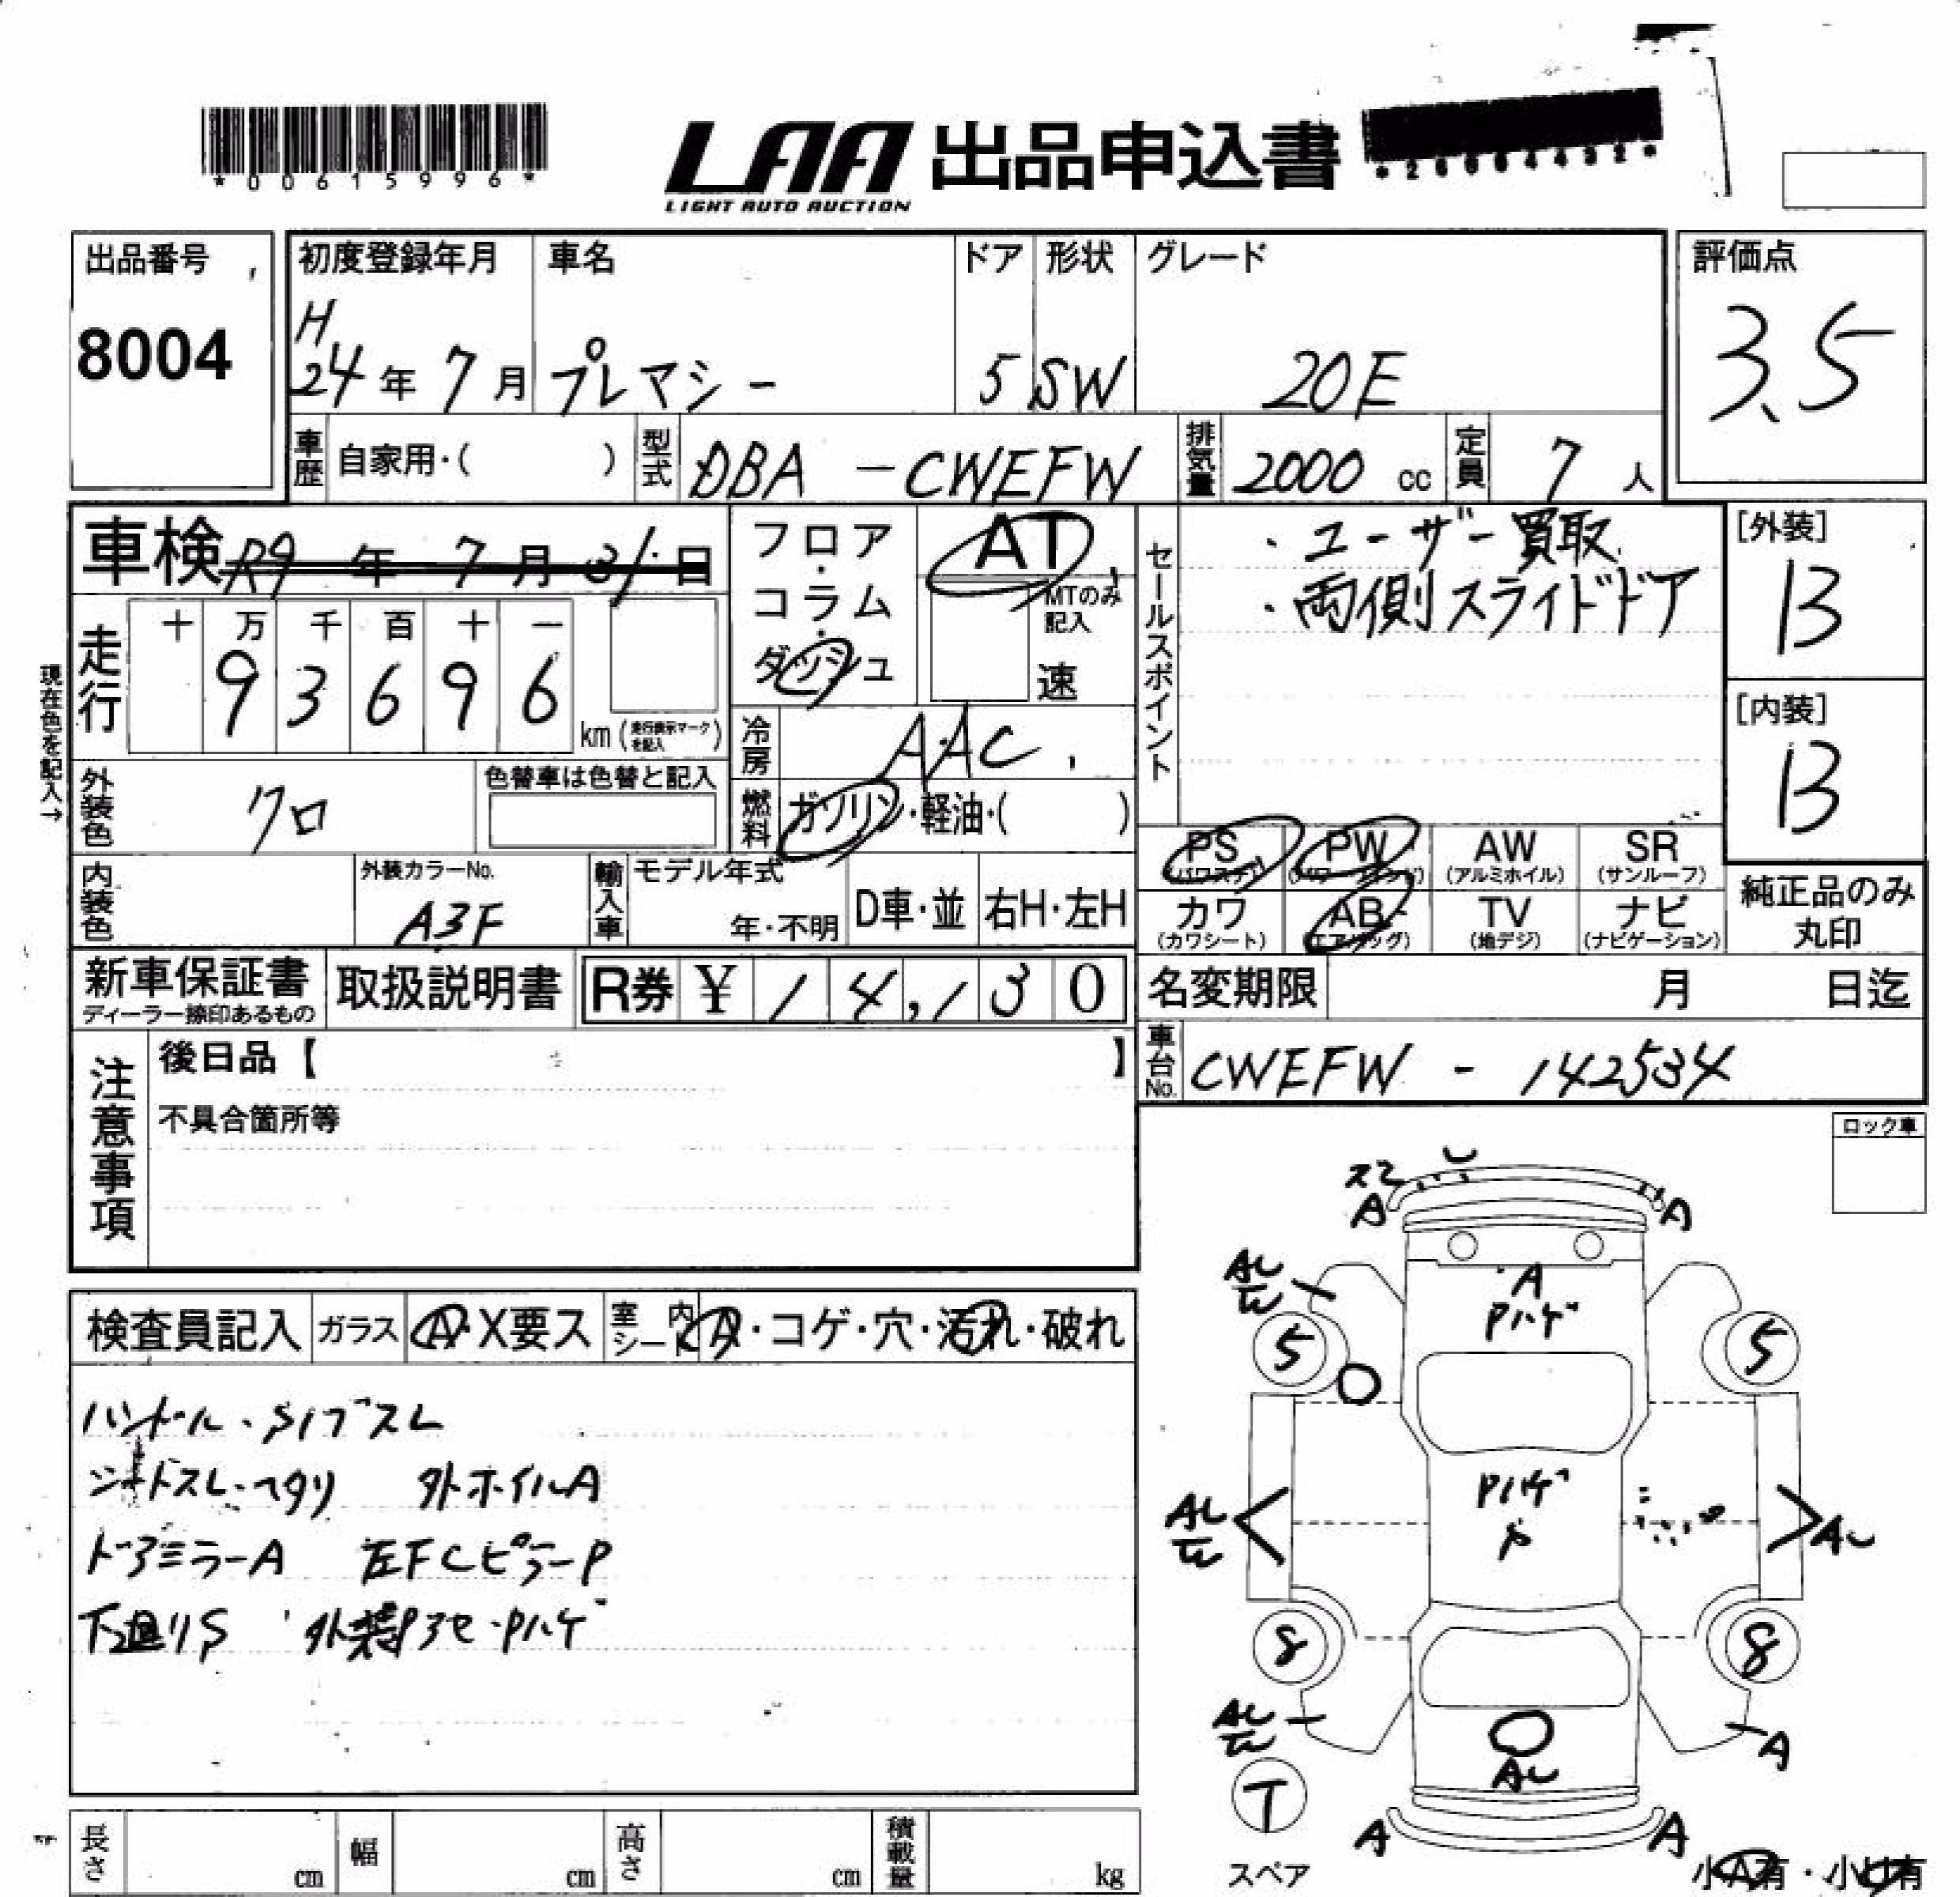 *00615996*
LAA 出品申込書
LIGHT AUTO AUCTION
出品番号
8004
初度登録年月
H
24年 7月
車名
プレマシー
ドア
5
形状
SW
グレード
20E
評価点
3.5
車歴 自家用・( )
型式 DBA - CWEFW
排気量 2000 cc
定員 7 人
車検 R9 年 7 月 31 日
フロア・コラム・ダッシュ
AT
MTのみ記入
速
セールスポイント
・ユーザー買取
・両側スライドドア
[外装]
B
[内装]
B
現在色を記入→
走行
十 万 千 百 十 一
9 3 6 9 6
km (走行表示マークを記入)
冷房 AAC
外装色 クロ
色替車は色替と記入
燃料 ガソリン・軽油・( )
PS (パワステ)
PW (パワーウィンド)
AW (アルミホイル)
SR (サンルーフ)
内装色
外装カラーNo.
A3F
輸入車
モデル年式
年・不明
D車・並
右H・左H
カワ (カワシート)
AB (エアバッグ)
TV (地デジ)
ナビ (ナビゲーション)
純正品のみ
丸印
新車保証書
ディーラー捺印あるもの
取扱説明書
R券 ¥ 14,130
名変期限 月 日迄
車台No. CWEFW - 142534
注意事項
後日品【 】
不具合箇所等
ロック車
検査員記入
ガラス
A・X要ス
室内シート
A・コゲ・穴・汚れ・破れ
ハンドル・
シートスレ・ヘタリ 外ホイルA
ドアミラーA 左FCピラーP
下廻りS
A
A
A
Pハゲ
5
5
Pハゲ
8
8
A
T
スペア
A
A
小A有・小U有
長さ cm
幅 cm
高さ cm
積載量 kg